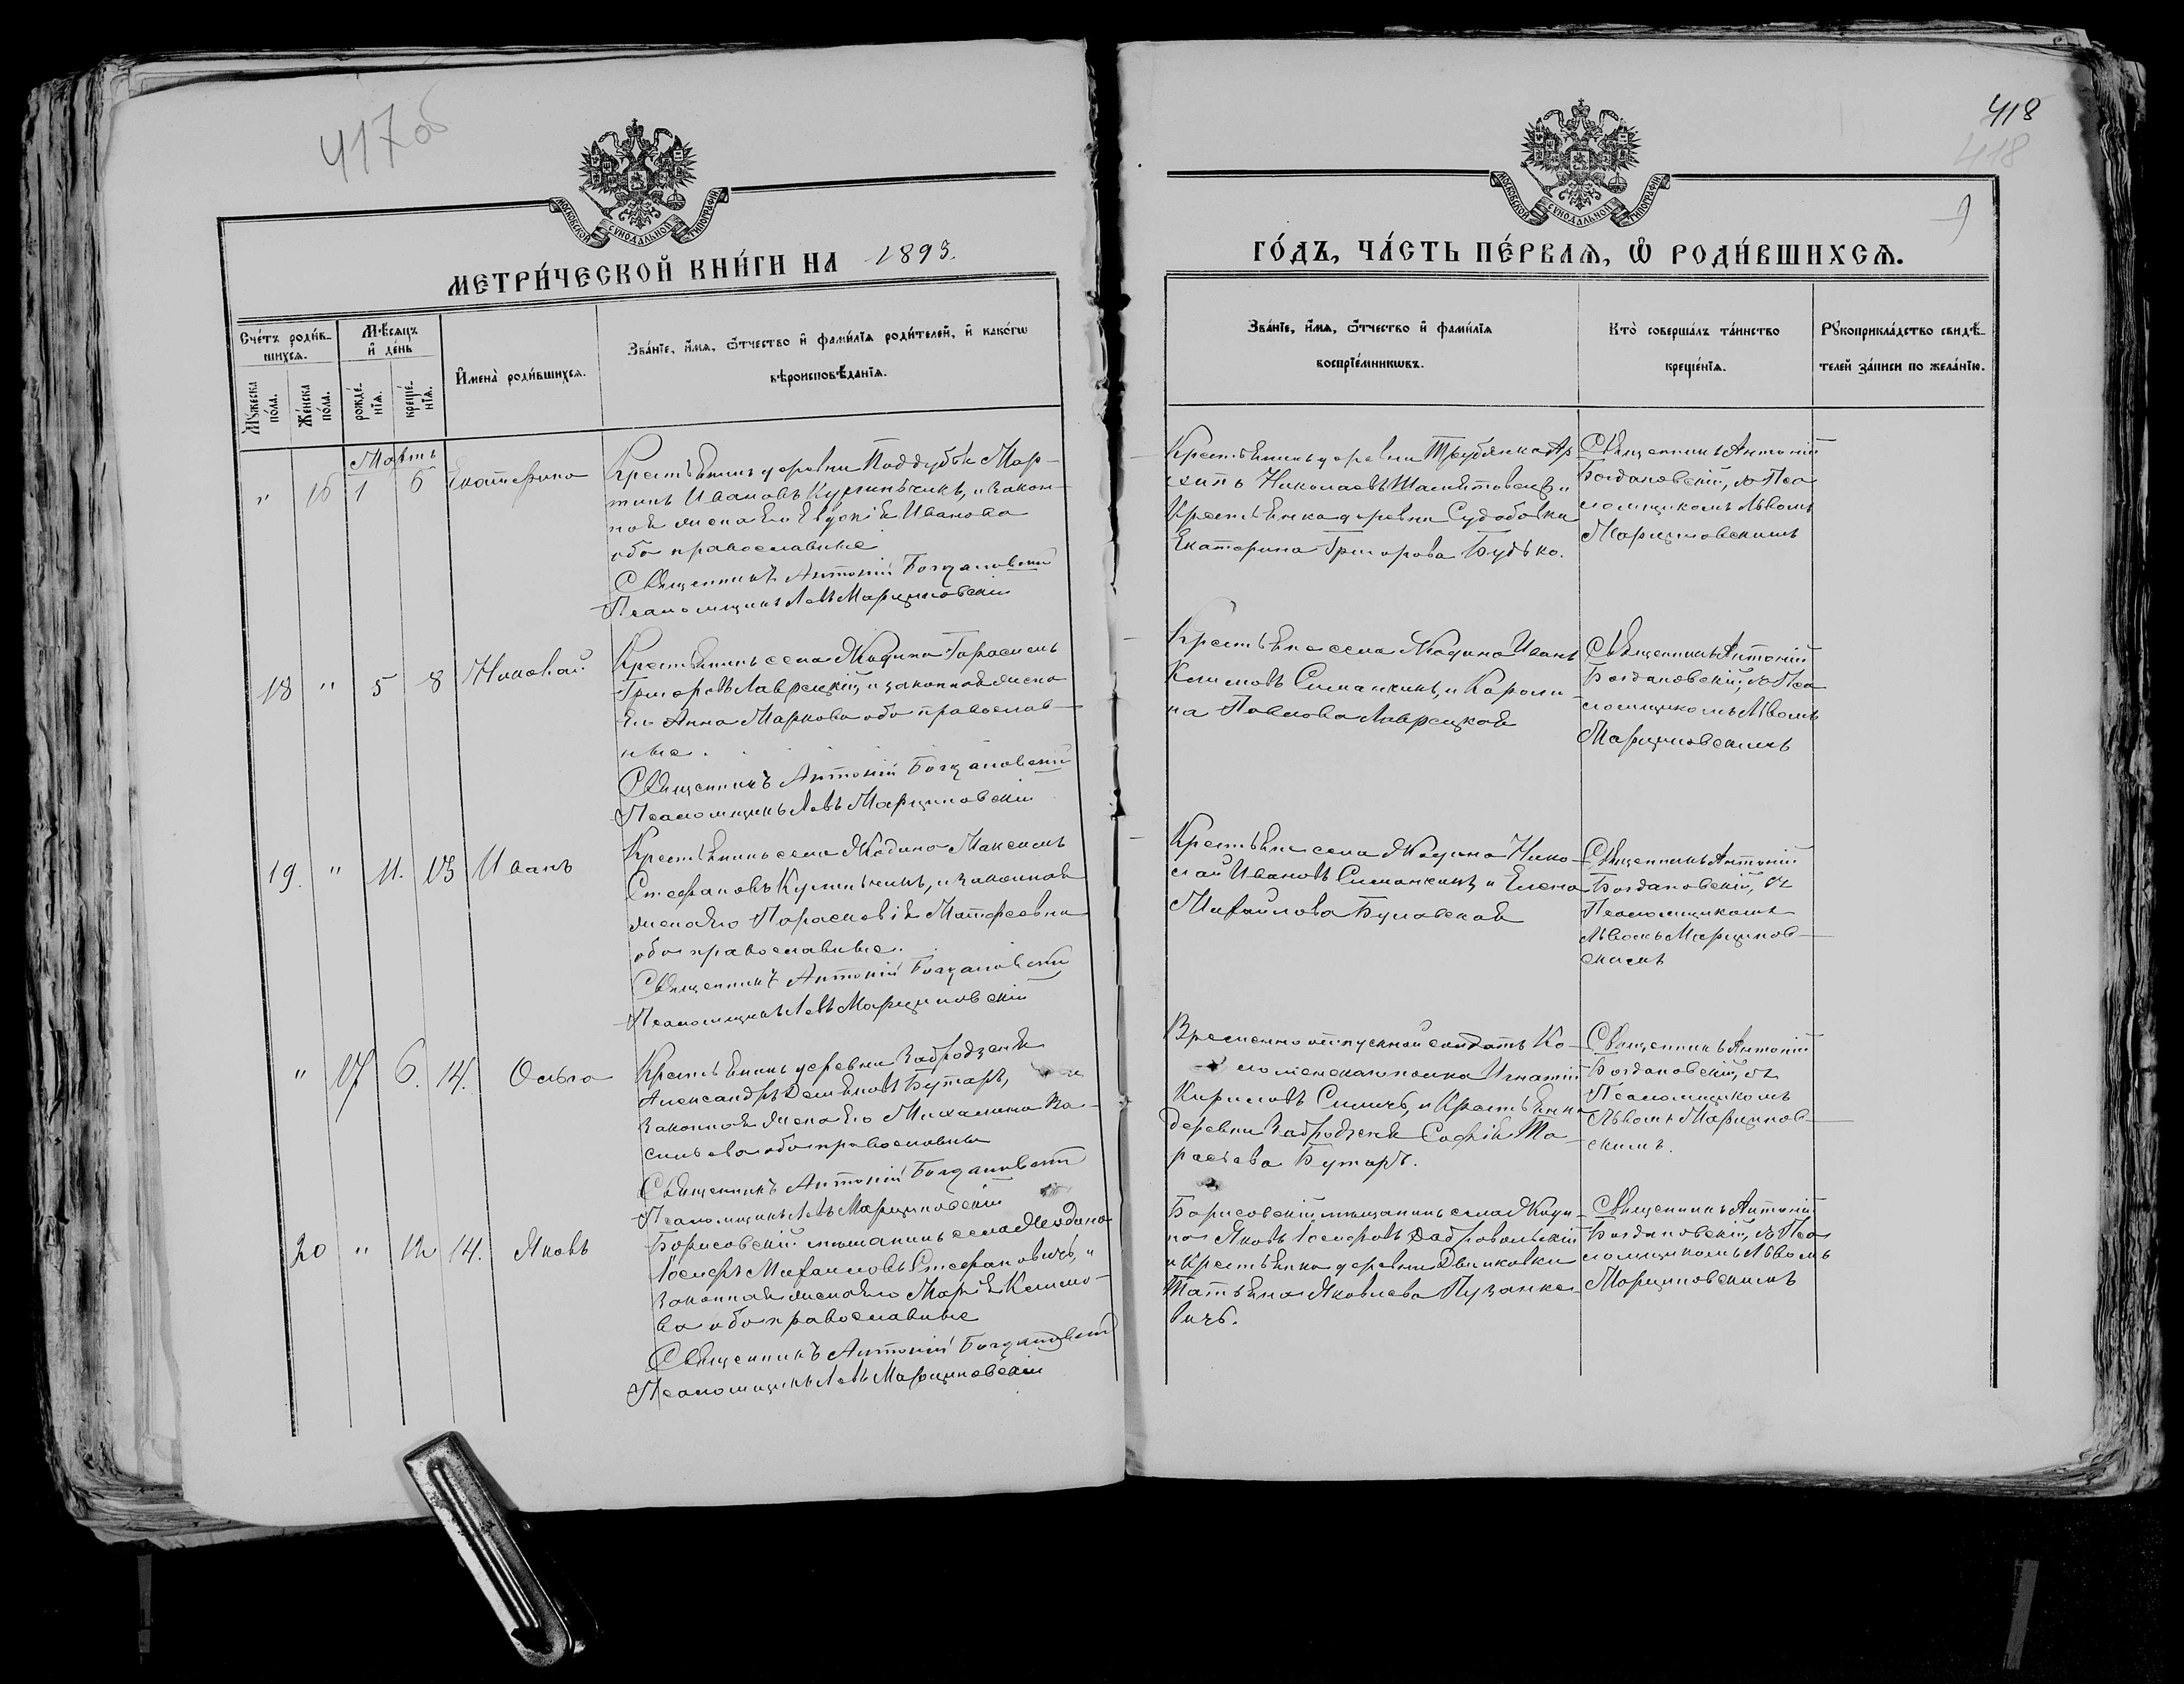 417 об
418
418
МОСКОВСКОЙ СУНОДАЛЬНОЙ ТИПОГРАФІИ
МЕТРИ́ЧЕСКОЙ КНИ́ГИ НА 1893.
Сче́тъ роди́в-
шихся.
Мꙋ́жеска
по́ла.
Же́нска
по́ла.
Мѣ́сяцъ
и҆ де́нь
рожде́-
нїя.
креще́-
нїя.
И҆мена̀ роди́вшихся.
Зва́нїе, и҆́мя, ѻ҆́тчество и҆ фами́лїя роди́телей, и҆ како́гѡ
вѣроисповѣ́данїя.
Мартъ
" 16 1 6 Екатерина
Крестьянинъ деревни Поддубья Мар-
тинъ Ивановъ, и закон-
ная жена его Евдокія Иванова
оба православные
Священникъ Антоній Богдановскій
Псаломщикъ Левъ Марциновскій
18 " 5 8 Николай
Крестьянинъ села Жодина Герасимъ
Григоровъ Лаврецкій, и законная жена
его Анна Маркова оба православ-
ные.
Священникъ Антоній Богдановскій
Псаломщикъ Левъ Марциновскій
19. " 11. 13 Иванъ
Крестьянинъ села Жодина Максимъ
Стефановъ, и законная
жена его Параскевія Матфеевна
оба православные.
Священникъ Антоній Богдановскій
Псаломщикъ Левъ Марциновскій
" 17 6. 14. Ольга
Крестьянинъ деревни Забродзенья
Александръ Демьяновъ Бутаръ, и
законная жена его Михалина Ва-
сильева оба православные
Священникъ Антоній Богдановскій
Псаломщикъ Левъ Марциновскій
20 " 12 14. Яковъ
Борисовскій мѣщанинъ села Жодина
Іосифъ Михаиловъ Стефановичъ, и
законная жена его Марія Климо-
ва оба православные
Священникъ Антоній Богдановскій
Псаломщикъ Левъ Марциновскій
МОСКОВСКОЙ СУНОДАЛЬНОЙ ТИПОГРАФІИ
ГО́ДЪ, ЧА́СТЬ ПЕ́РВАЯ, Ѡ҆ РОДИ́ВШИХСЯ.
Зва́нїе, и҆́мя, ѻ҆́тчество и҆ фами́лїя
воспрїе́мникѡвъ.
Кто̀ соверша́лъ та́инство
креще́нїя.
Рꙋкоприкла́дство свидѣ́-
телей за́писи по жела́нїю.
Крестьянинъ деревни Трубянка Ар
хипъ Николаевъ и
крестьянка деревни Судобовки
Екатерина Григорова Будько.
Священникъ Антоній
Богдановскій, съ Пса
ломщикомъ Львомъ
Марциновскимъ
Крестьяне села Жодина Иванъ
Климовъ Симанкинъ, и Кароли-
на Павлова Лаврецкая
Священникъ Антоній
Богдановскій, съ Пса
ломщикомъ Львомъ
Марциновскимъ
Крестьяне села Жодина Нико-
лай Ивановъ Симанкинъ и Елена
Михайлова
Священникъ Антоній
Богдановскій, съ
Псаломщикомъ
Львомъ Марцинов-
скимъ
Временно отпускной солдатъ Ко-
ломенскаго полка Игнатій
Кириловъ Симичъ, и крестьянка
деревни Забродзенья Софія Та-
расьева Бутаръ.
Священникъ Антоній
Богдановскій, съ
Псаломщикомъ
Львомъ Марцинов-
скимъ.
Борисовскій мѣщанинъ села Жоди-
на Яковъ Іосифовъ Добровольскій
и крестьянка деревни
Татьяна Яковлева Пузанке-
вичъ.
Священникъ Антоній
Богдановскій, съ Пса
ломщикомъ Львомъ
Марциновскимъ